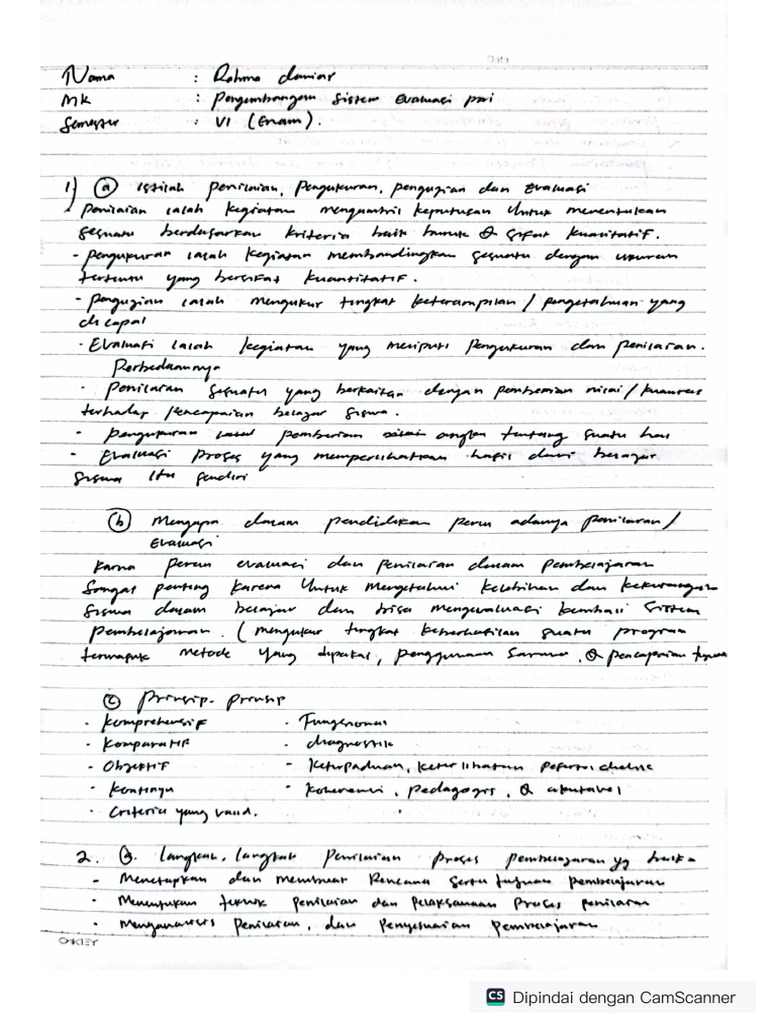 Nama : Rahma daniar
MK : Pengembangan Sistem Evaluasi pai
Semester : VI (Enam).
1) (a) Istilah penilaian, Pengukuran, pengujian dan Evaluasi
Penilaian ialah kegiatan mengambil keputusan Untuk menentukan
sesuatu berdasarkan kriteria baik buruk & sifat kualitatif.
- Pengukuran ialah kegiatan membandingkan sesuatu dengan ukuran
tertentu yang bersikat kuantitatif.
- pengujian ialah mengukur tingkat keterampilan / pengetahuan yang
di capai
- Evaluasi ialah kegiatan yang meliputi Pengukuran dan penilaian.
Perbedaannya
- Penilaian sesuatu yang berkaitan dengan pemberian nilai / kualitas
terhadap Pencapaian belajar siswa.
- pengukuran pemberian angka tentang suatu hal
- Evaluasi proses yang memperlihatkan hasil dari belajar
siswa itu sendiri
(b) Mengapa dalam pendidikan perlu adanya penilaian /
Evaluasi
Karna perlu evaluasi dan penilaian dalam pembelajaran
Sangat penting karena Untuk Mengetahui kelebihan dan kekurangan
siswa dalam belajar dan bisa mengevaluasi kembali sistem
pembelajaran. ( mengukur tingkat keberhasilan suatu program
termasuk metode yang dipakai, penggunaan sarana, & pencapaian tujuan
(c) Prinsip- prinsip
- Komprehensif - Fungsional
- Komparatif - diagnostik
- Objektif - Keterpaduan, keterlibatan peserta didik
- Kontinyu - Koherensi, pedagogis, & akuntabel
- Criteria yang valid.
2. (a). Langkah, langkah penilaian proses pembelajaran yg baik-
- Menetapkan dan membuat Rencana serta tujuan pembelajaran
- Menentukan teknik penilaian dan pelaksanaan proses penilaian
- Menganalisis penilaian, dan Penyesuaian pembelajaran
CS Dipindai dengan CamScanner